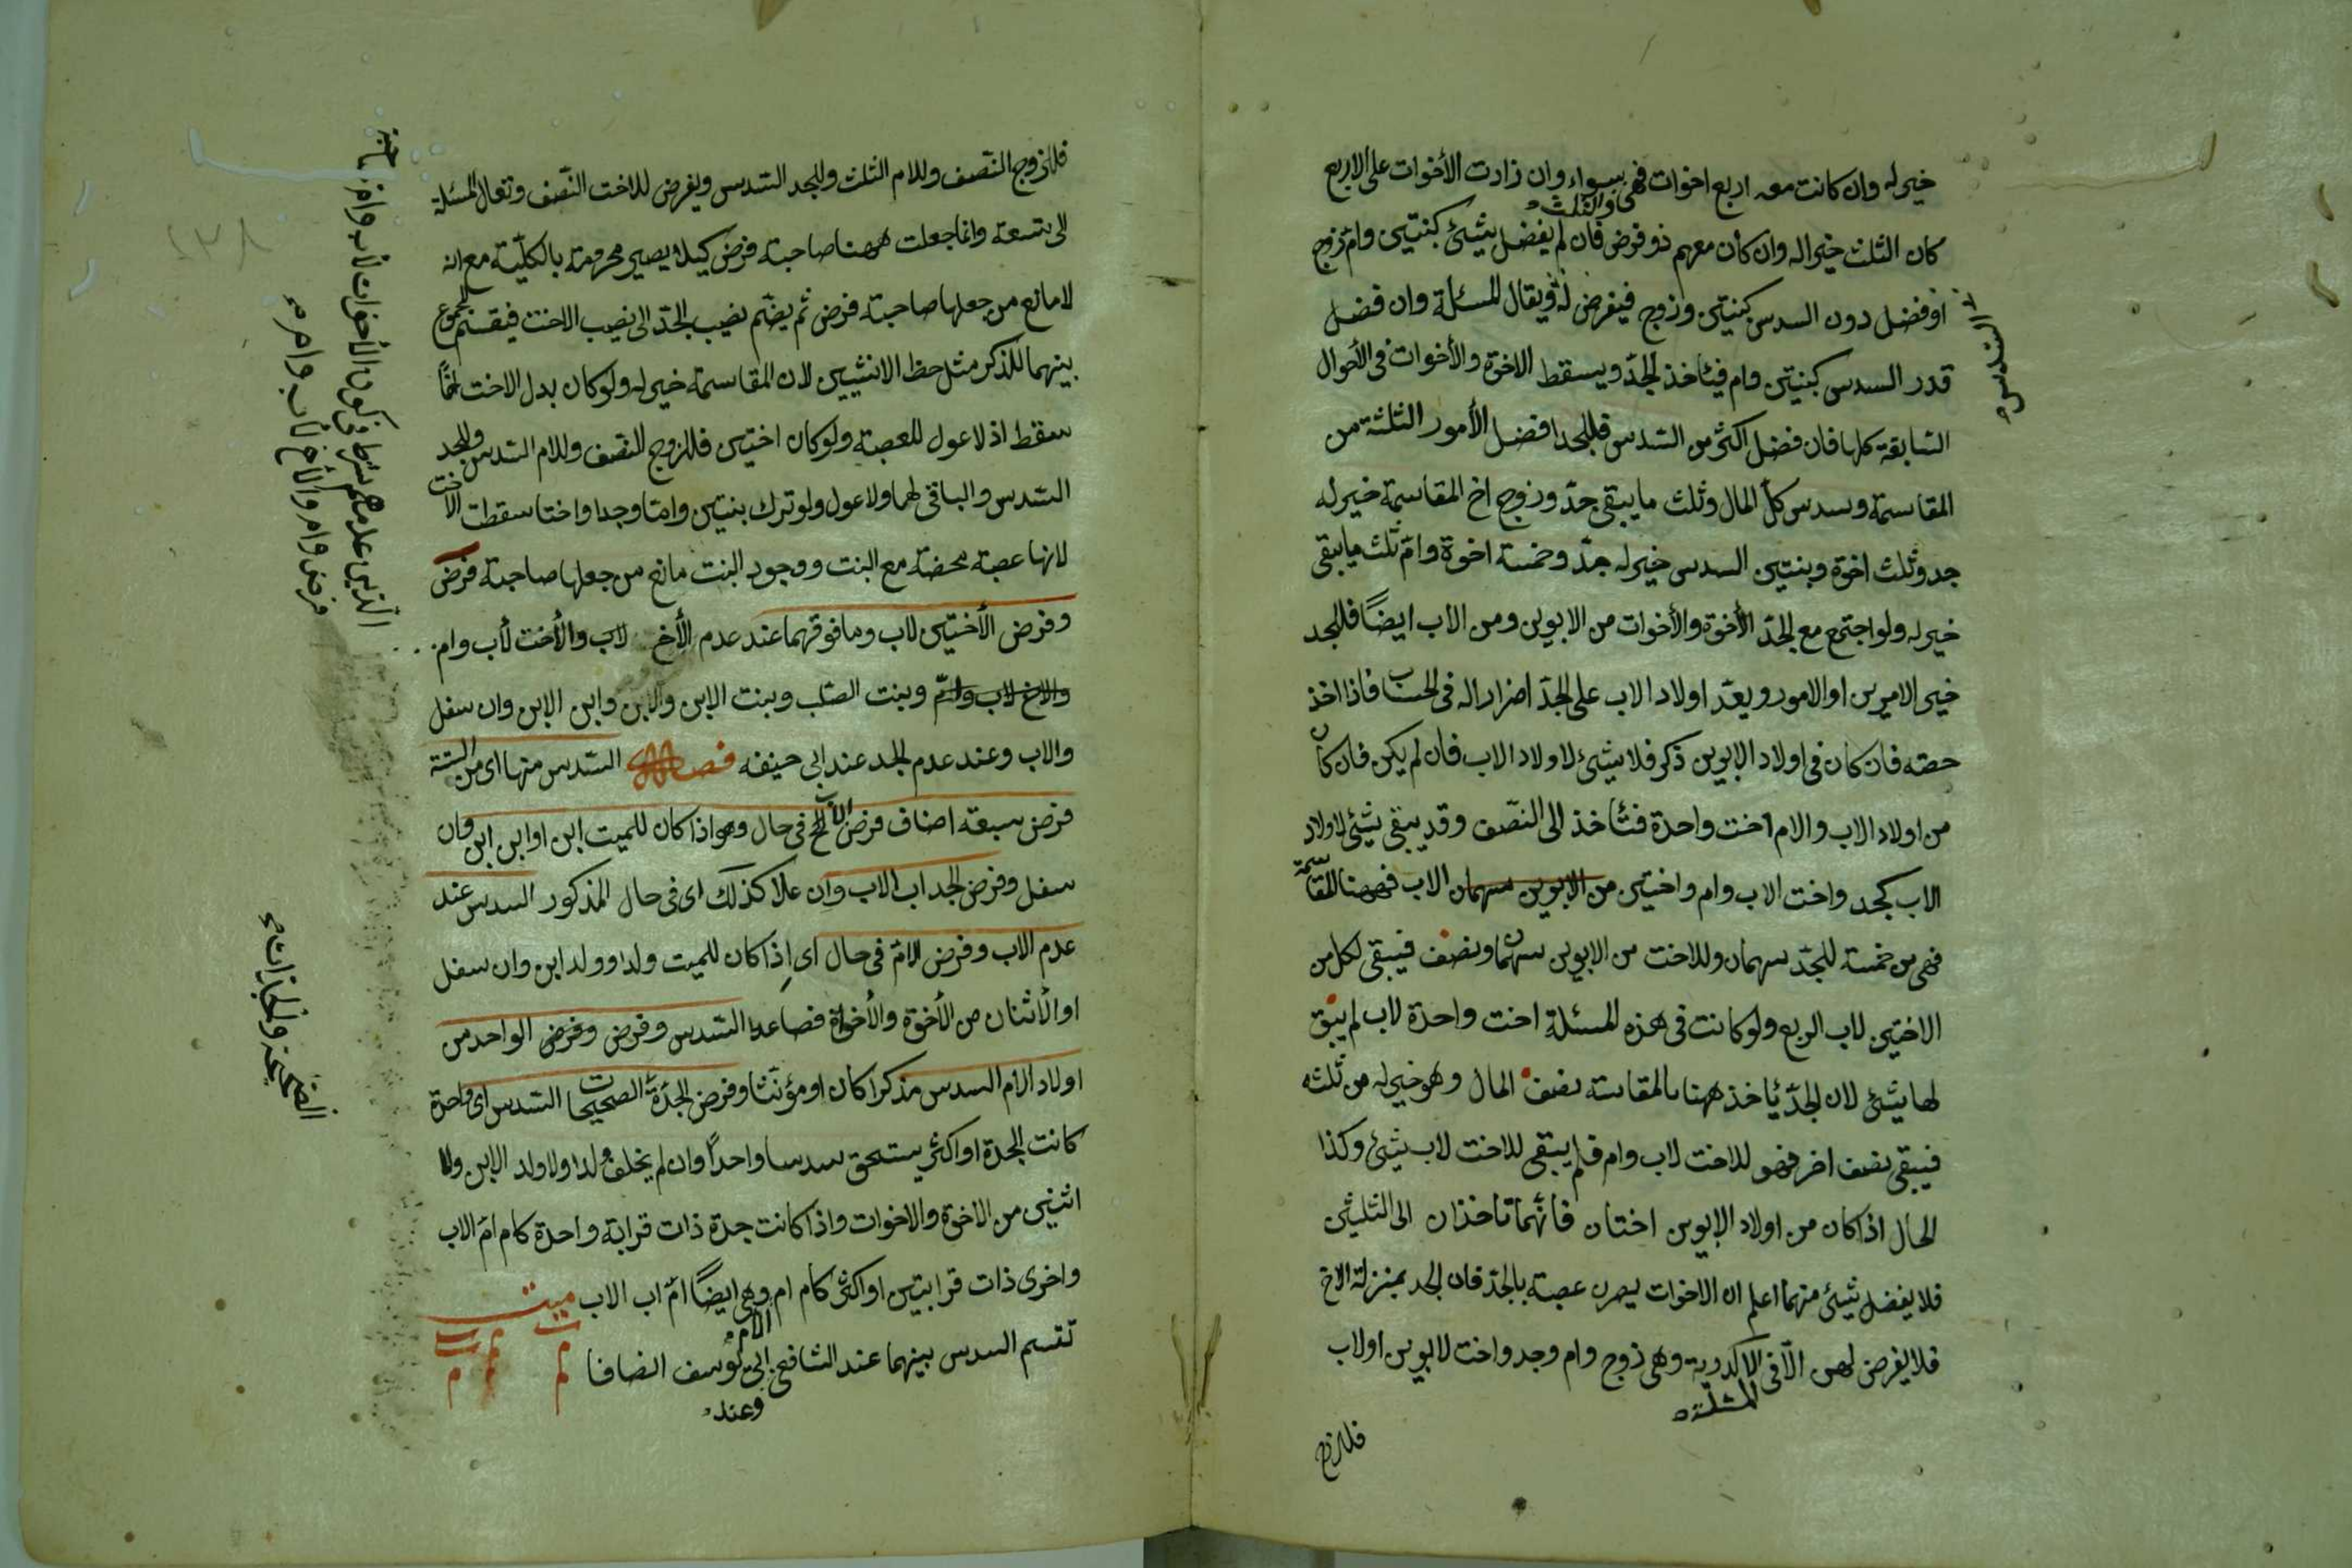 خير له وان كانت معه اربع اخوات فهى سواء وان زادت الأخوات على الاربع
والثلث
كان الثلث خير اله وان كان معهم ذو فرض فان لم يفضل شئ كبنتين وام وزوج
اوفضل دون السدس كبنتين وزوج فيفرض له ويقال المسئلة وان فضل
السدس
قدر السدس كبنتين وام فيأخذ الجدّ ويسقط الاخوة والأخوات فى الأحوال
السّابقة كلها فان فضل اكثر من السّدس فللجد افضل الأمور الثلثة من
المقاسمة وسدس كلّ المال وثلث ما يبقى جدّ وزوج اخ المقاسمة خير له
جد وثلث اخوة وبنتين السدس خير له جدّ وخمسة اخوة وامّ ثلث ما يبقى
خير له ولو اجتمع مع الجدّ الأخوة والأخوات من الابوين ومن الاب ايضًا فللجد
خير الامرين او الامور ويعدّ اولاد الاب على الجدّ اضرارا له فى الحساب فاذا اخذ
حصته فان كان فى اولاد الابوين ذكر فلا شئ لاولاد الاب فان لم يكن فان كان
من اولاد الاب والام اخت واحدة فتأخذ الى النصّف وقد يبقى شئ لاولاد
الاب كجد واخت الاب وام واختين من الابوين سهمان الاب فههنا المقاسمة
فهى من خمسة للجدّ سهمان وللاخت من الابوين سهمان ونصف فيبقى لكل من
الاختين لاب الربع ولو كانت فى هذه المسئلة اخت واحدة لاب لم يبق
لها شئ لان الجدّ يأخذ ههنا بالمقاسة نصف المال وهو خير له من ثلثه
فيبقى نصف اخر فهو للاخت لاب وام فلم يبقى للاخت لاب شئ وكذا
الحال اذا كان من اولاد الابوين اختان فأنهما تاخذان الى الثلثين
فلا يفضل شئ منهما اعلم ان الاخوات يصرن عصبة بالجدّ فان الجد بمنزلة الاخ
فلا يفرض لهن الّا فى الاكدرية وهى زوج وام وجد واخت لابوين اولاب
المسئلة
فللزوج
فللزوج النّصف وللام الثلث وللجد السّدس ويفرض للاخت النّصف وتعال المسئلة
الى تسعة وانما جعلت ههنا صاحبة فرض كيلا يصير محرومة بالكلّيّة مع انه
لا مانع من جعلها صاحبة فرض ثم يضّم نصيب الجدّ الى نصيب الاخت فيقسم المجموع
بينهما للذكر مثل حظ الانثيين لان المقاسمة خير له ولو كان بدل الاخت اخًا
سقط اذ لا عول للعصبة ولو كان اختين فللزوج النّصف وللام السّدس وللجد
السّدس والباقى لهما ولا عول ولو ترك بنتين وامّا وجدا واختا سقطت الاخت
لانها عصبة محضة مع البنت ووجود البنت مانع من جعلها صاحبة فرض
وفرض الأختين لاب وما فوقهما عند عدم الأخ لاب والأخت لأب وام
والاخ لاب وامّ وبنت الصّلب وبنت الابن والابن وابن الابن وان سفل
والاب وعند عدم الجد عند ابى حنيفه فصل السّدس منها اى من الستة
فرض سبعة اصناف فرض الاب فى حال وهو اذا كان للميت ابن او ابن ابن وان
سفل وفرض الجد اب الاب وان علا كذلك اى فى حال المذكور السدس عند
عدم الاب وفرض الامّ فى حال اى اذا كان للميت ولد او ولد ابن وان سفل
او الأثنان من الأخوة والأخوات فصاعدا السّدس وفرض وفرض الواحد من
اولاد الام السدس مذكرا كان او مؤنّثا وفرض الجدّة الصحيحات السّدس اى واحدة
كانت الجدة او اكثر يستحق سدسا واحداً وان لم يخلف ولدا ولا ولد الابن ولا
اثنين من الاخوة والاخوات واذا كانت جدة ذات قرابة واحدة كام امّ الاب
واخرى ذات قرابتين او اكثر كام ام وهى ايضًا امّ اب الاب ميت
الام
تقسم السدس بينهما عند الشافعى ابى يوسف انصافا
وعند
الّذين عدمهم شرط فى كون الأخوات لاب وام صاحبة
فرض وام والأخ لأب وام
الصّحيحة والجازات